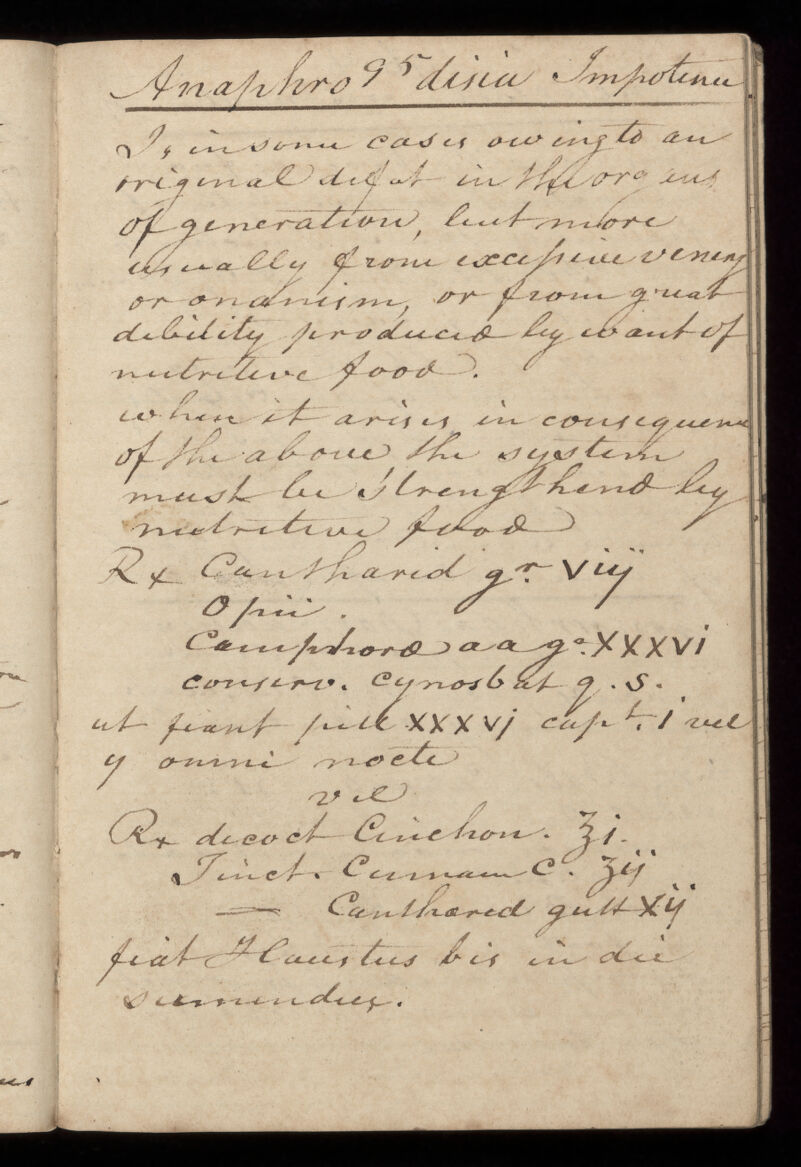 Anaphro 95 disia Impotence
Is in some cases owing to an
original defect in the organs
of generation, but more
usually from excessive venery
or onanism, or from great
debility produced by want of
nutritive food.
when it arises in consequence
of the above the system
must be strengthend by
nutritive food
Rx Cantharid gr. viij
Opii.
Camphoræ a a gr. XXXVi
conserv. Cynosbat q. s.
ut fiant pill XXXVj capt. i vel
ij omni nocte
vel
Rx decoct Cinchon. ℥i.
Tinct. Cinnam C. ʒij
— Cantharid gutt Xij
fiat Haustus bis in die
sumendus.
us